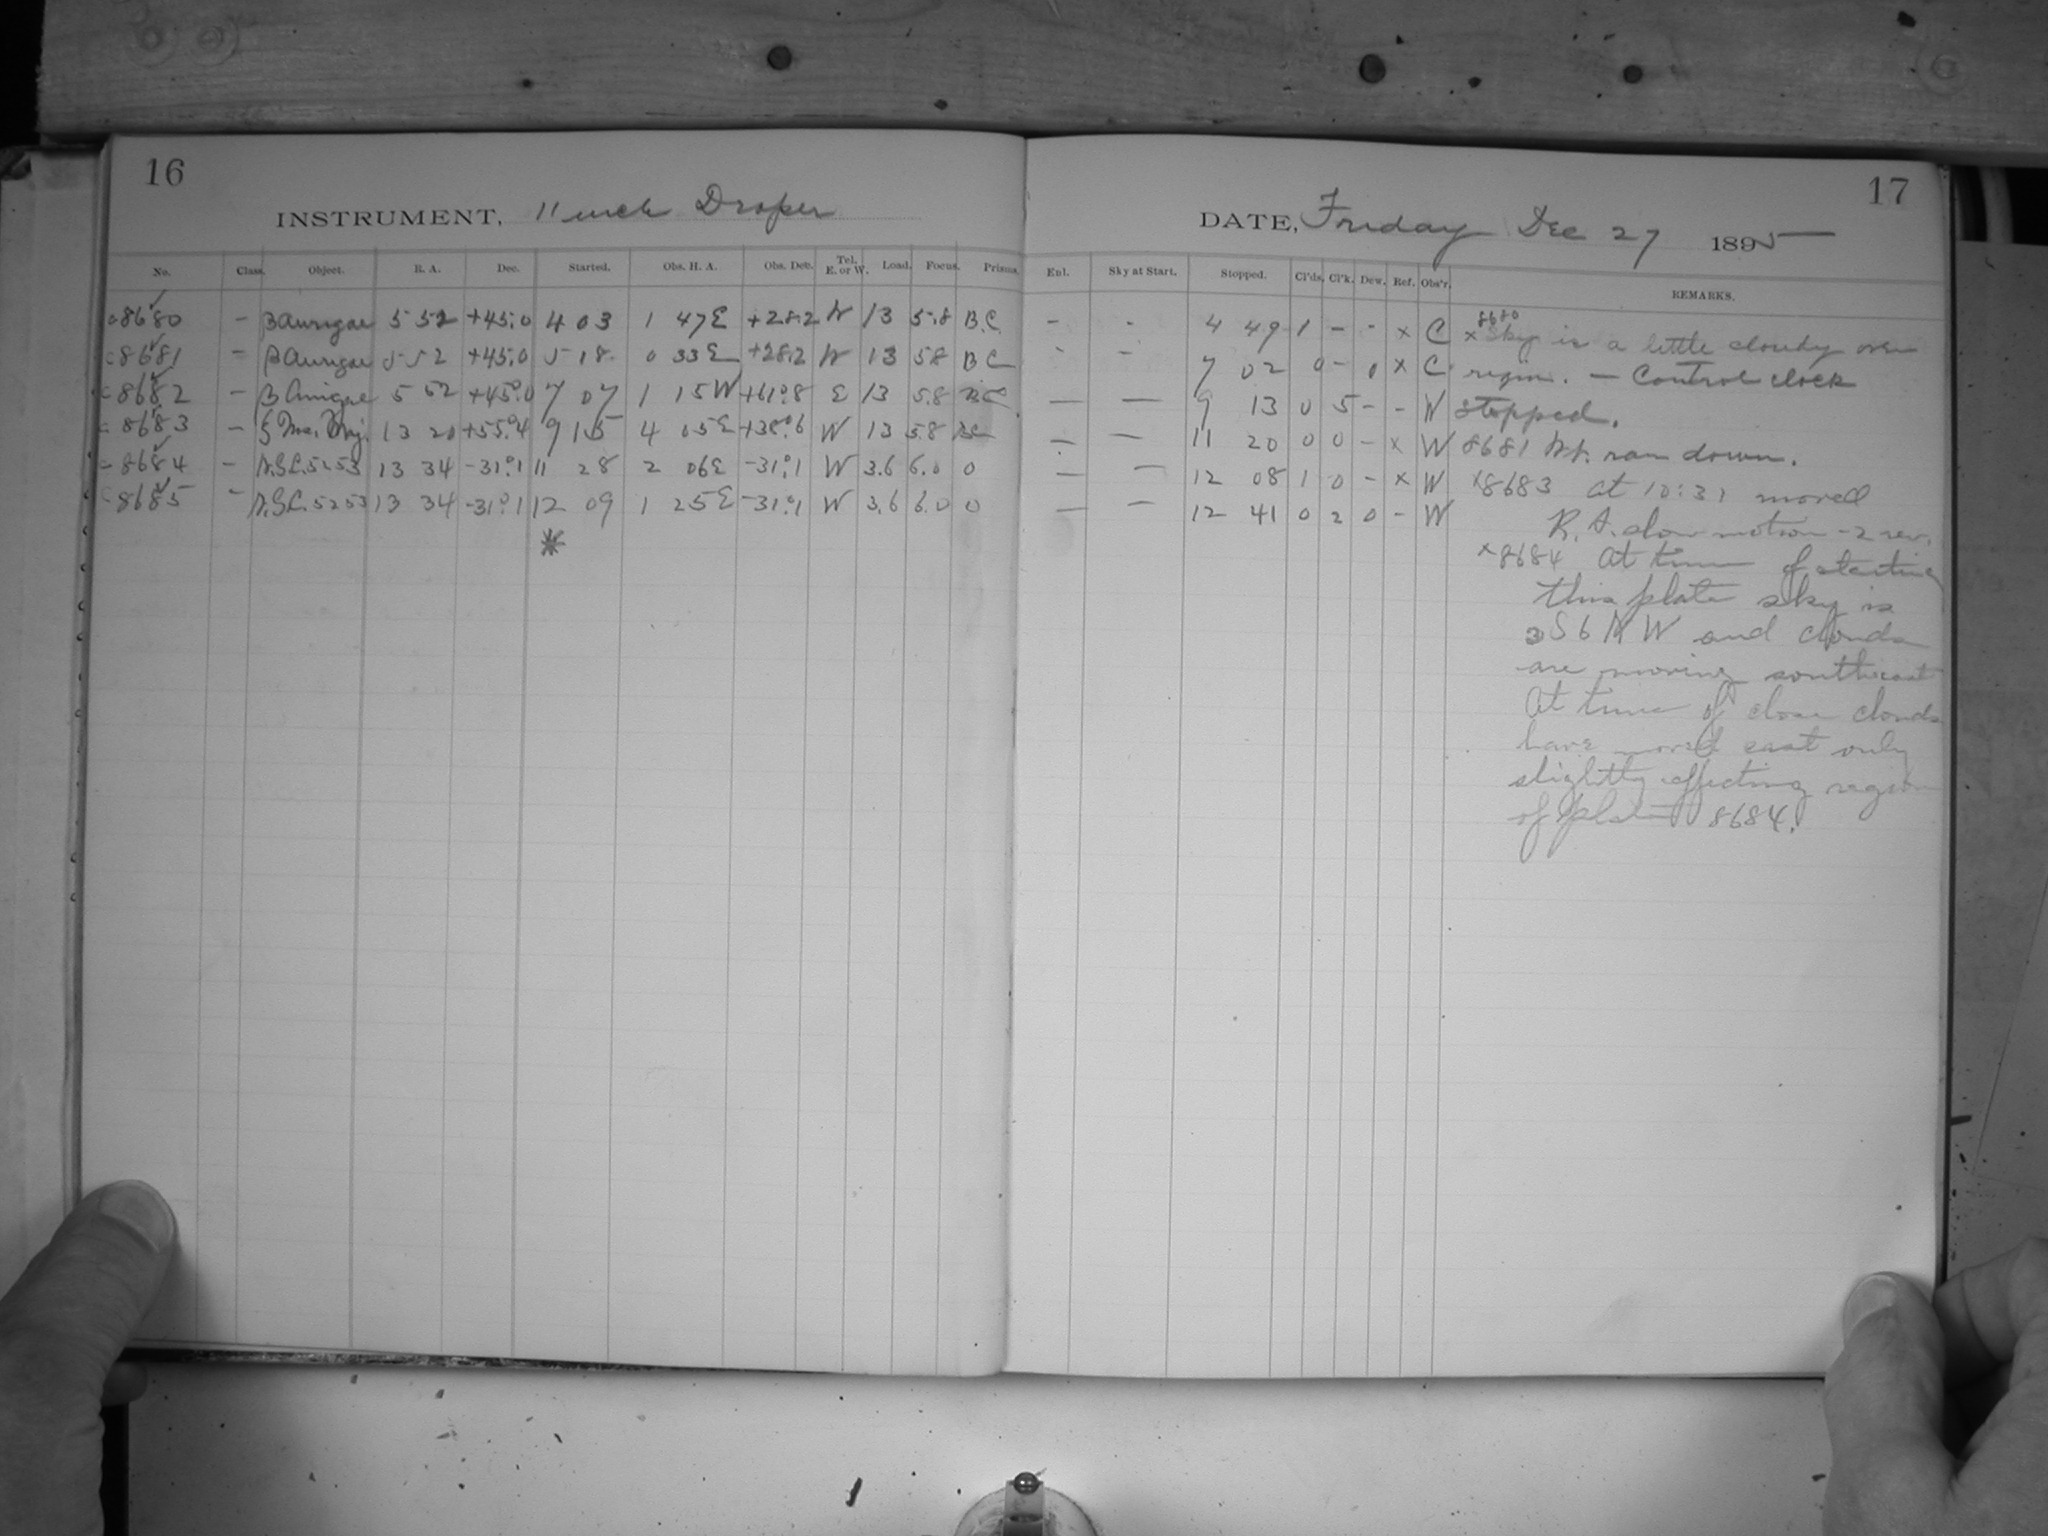 16
INSTRUMENT, 11 inch Draper
No. Class. Object. R. A. Dec. Started. Obs. H. A. Obs. Dec. Tel. E. or W. Load. Focus. Prisms.
8680 - β Aurigae 5 52 +45.0 4 03 1 47E +28.2 W 13 5.8 B.C.
8681 - β Aurigae 5 52 +45.0 5 18 0 33E +28.2 W 13 5.8 B C
8682 - β Aurigae 5 52 +45.0 7 07 1 15W +61.8 E 13 5.8 BC
8683 - ζ Urs. Maj. 13 20 +55.4 9 15 4 05E +38.6 W 13 5.8 BC
8684 - 5253 13 34 -31.1 11 28 2 06E -31.1 W 3.6 6.0 0
8685 - 5253 13 34 -31.1 12 09 1 25E -31.1 W 3.6 6.0 0
*
17
DATE, Friday Dec 27 1895
Eul. Sky at Start. Stopped. Cl'ds. Cl'k. Dew. Ref. Obs'r. REMARKS.
- - 4 49 1 - - x C
- - 7 02 0 - 0 x C
- - 9 13 0 5 - - W
- - 11 20 0 0 - x W
- - 12 08 1 0 - x W
- - 12 41 0 2 0 - W
x 8680 Sky is a little cloudy over
region. - Control clock
stopped.
8681 Wt. ran down.
x8683 At 10:31 moved
R. A. slow motion -2 rev.
x8684 At time of starting
this plate sky is
S 6 N W and clouds
are moving southeast
At time of close clouds
have moved east only
slightly affecting region
of plate 8684.